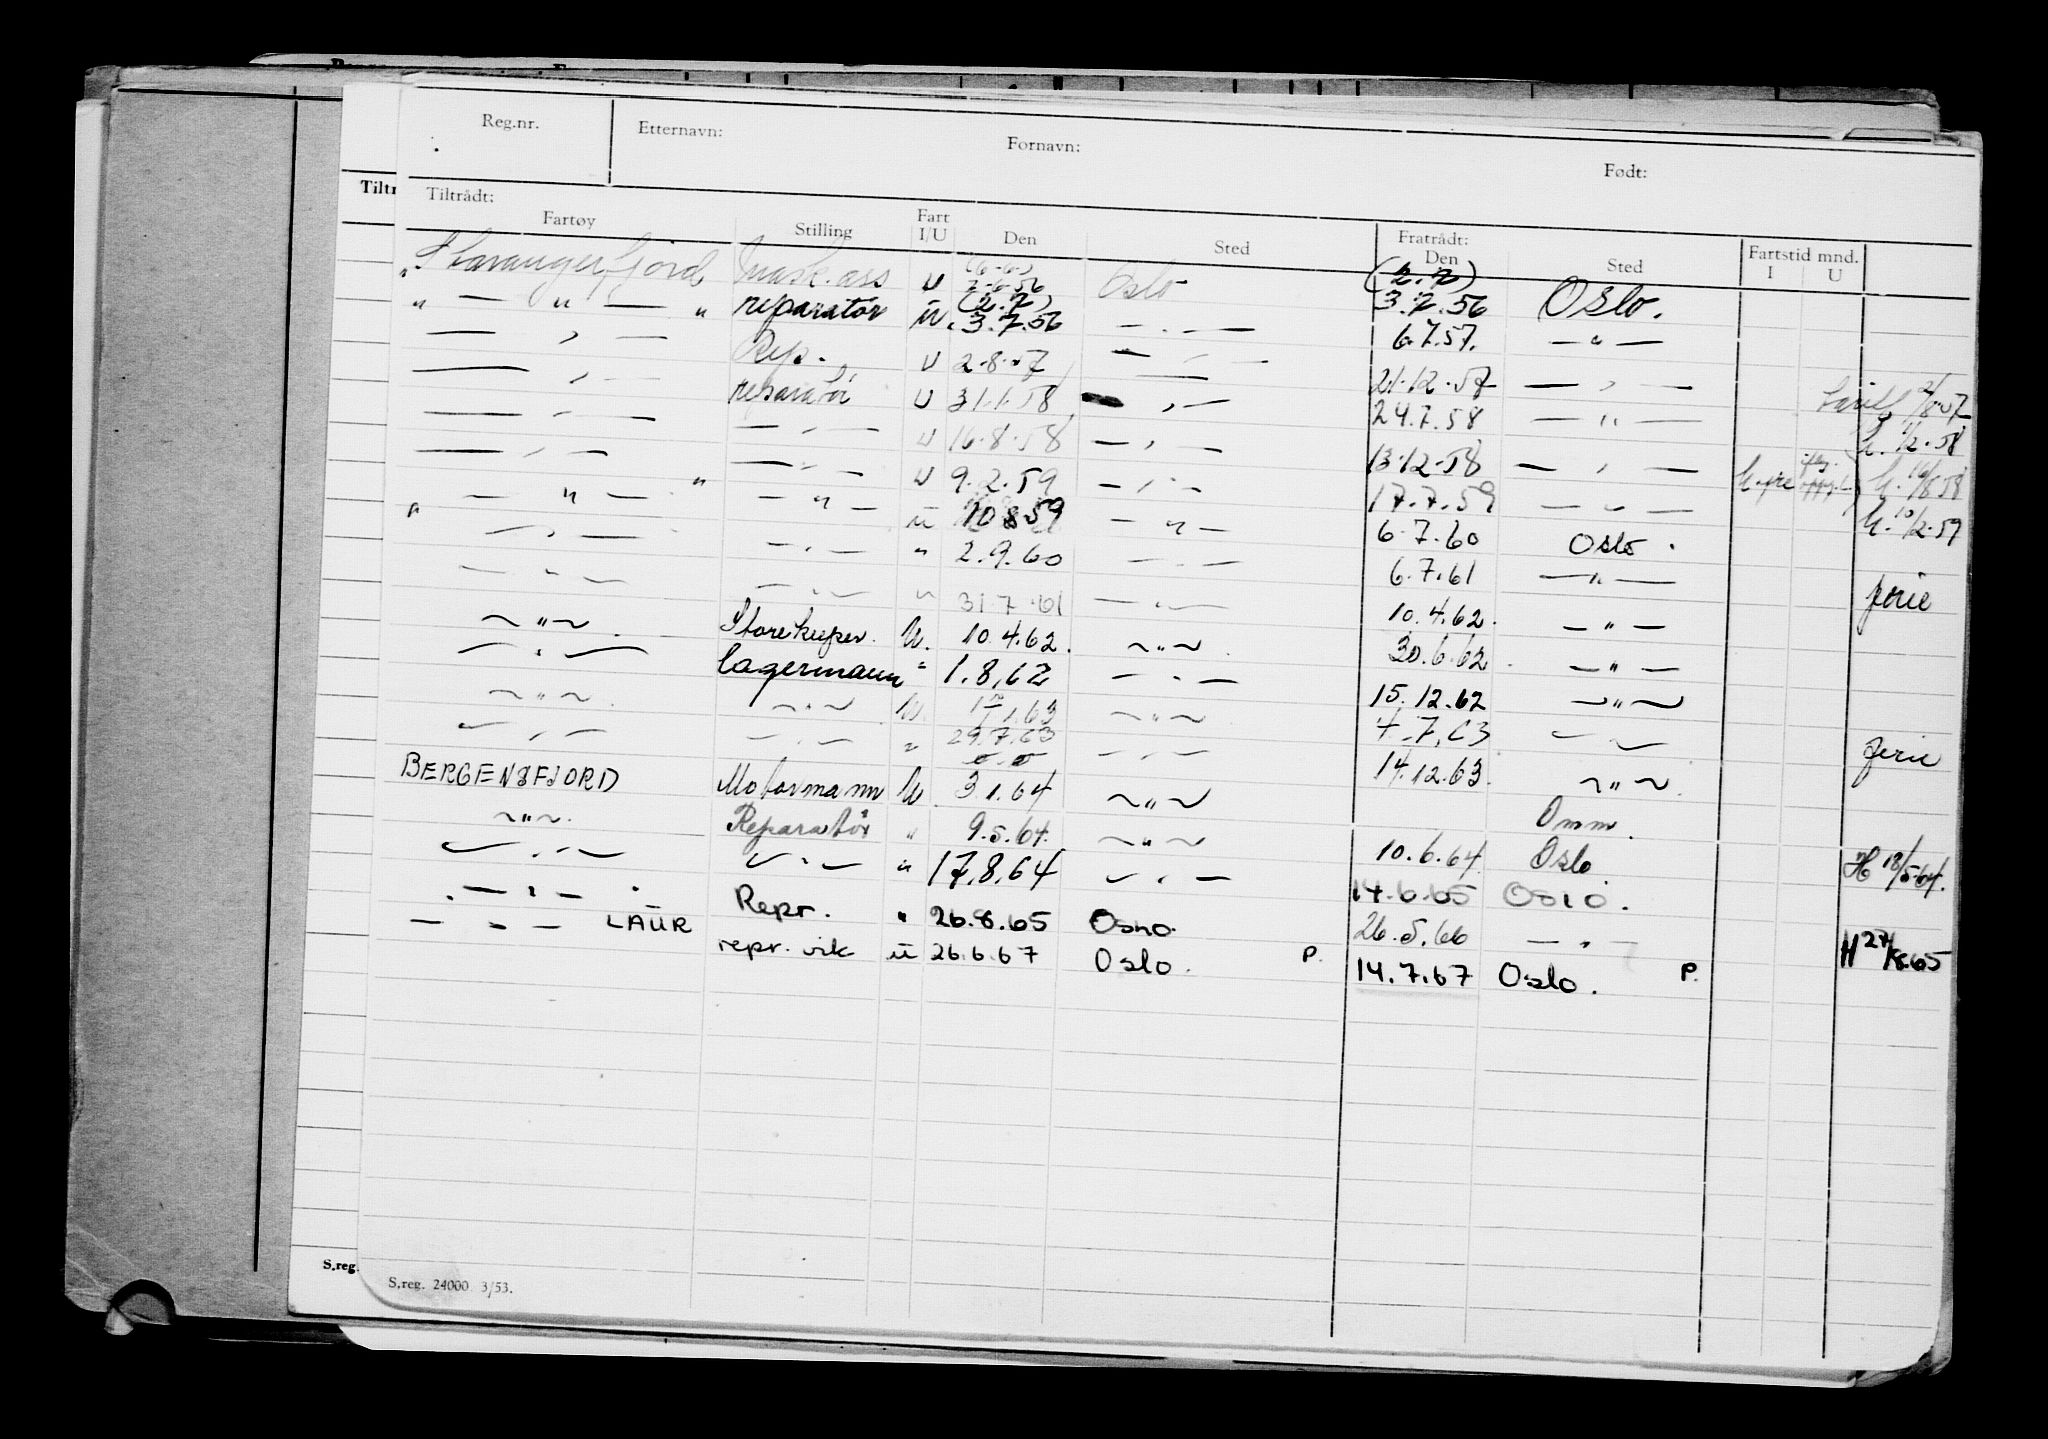 Reg.nr. Etternavn: Fornavn: Født:
Tiltr
Tiltrådt: Fratrådt: Fartstid mnd.
Fartøy Stilling Fart I/U Den Sted Den Sted I U
" Stavangerfjord mask.ass U (6-6) 2-6-56 Oslo (2.7) 3.7.56 Oslo.
" — " — " reparatør u. (2.7) 3.7.56 — " — 6.7.57. — " —
— " — Rep. U 2-8-57 — " — 21-12-57 — " — 2/8-57
— " — reparatør U 31.1.58 — " — 24.7.58 — " — h. 1/2-58
— " — — " — U 16-8-58 — " — 13-12-58 — " — h. 16/8 58
— " — — " — U 9.2.59 — " — 17.7.59 — " — h. 10/2-59
" — " — " — " — u 10 8 59 — " — 6.7.60 Oslo.
— " — — " — " 2.9.60 — " — 6.7.61 — " — ferie
— " — — " — " 31.7.61 — " — 10.4.62. — " —
~ " ~ Storekeeper. U. 10.4.62. ~ " ~ 30.6.62. — " —
— " — lagermann " 1.8.62 — " — 15.12.62 ~ " ~
~ " ~ ~ " ~ U. 1.63 ~ " ~ 4.7.63 — " — ferie
— " — — " — " 29.7.63 — " — 14.12.63. ~ " ~.
BERGENSFJORD Motormann U 3.1.64 ~ " ~ Omm.
~ " ~. Reparatør " 9.5.64. ~ " ~ 10.6.64 Oslo H 18/5-64.
— " — — " — " 17.8.64 — " — 14.6.65 Oslo.
— " — Repr. " 26.8.65 Oslo. 26.5.66 — " — H 27/8.65
— " — LAUR repr. vik u 26.6.67 Oslo. P. 14.7.67 Oslo. P.
S.reg.
S.reg. 24000 3/53.